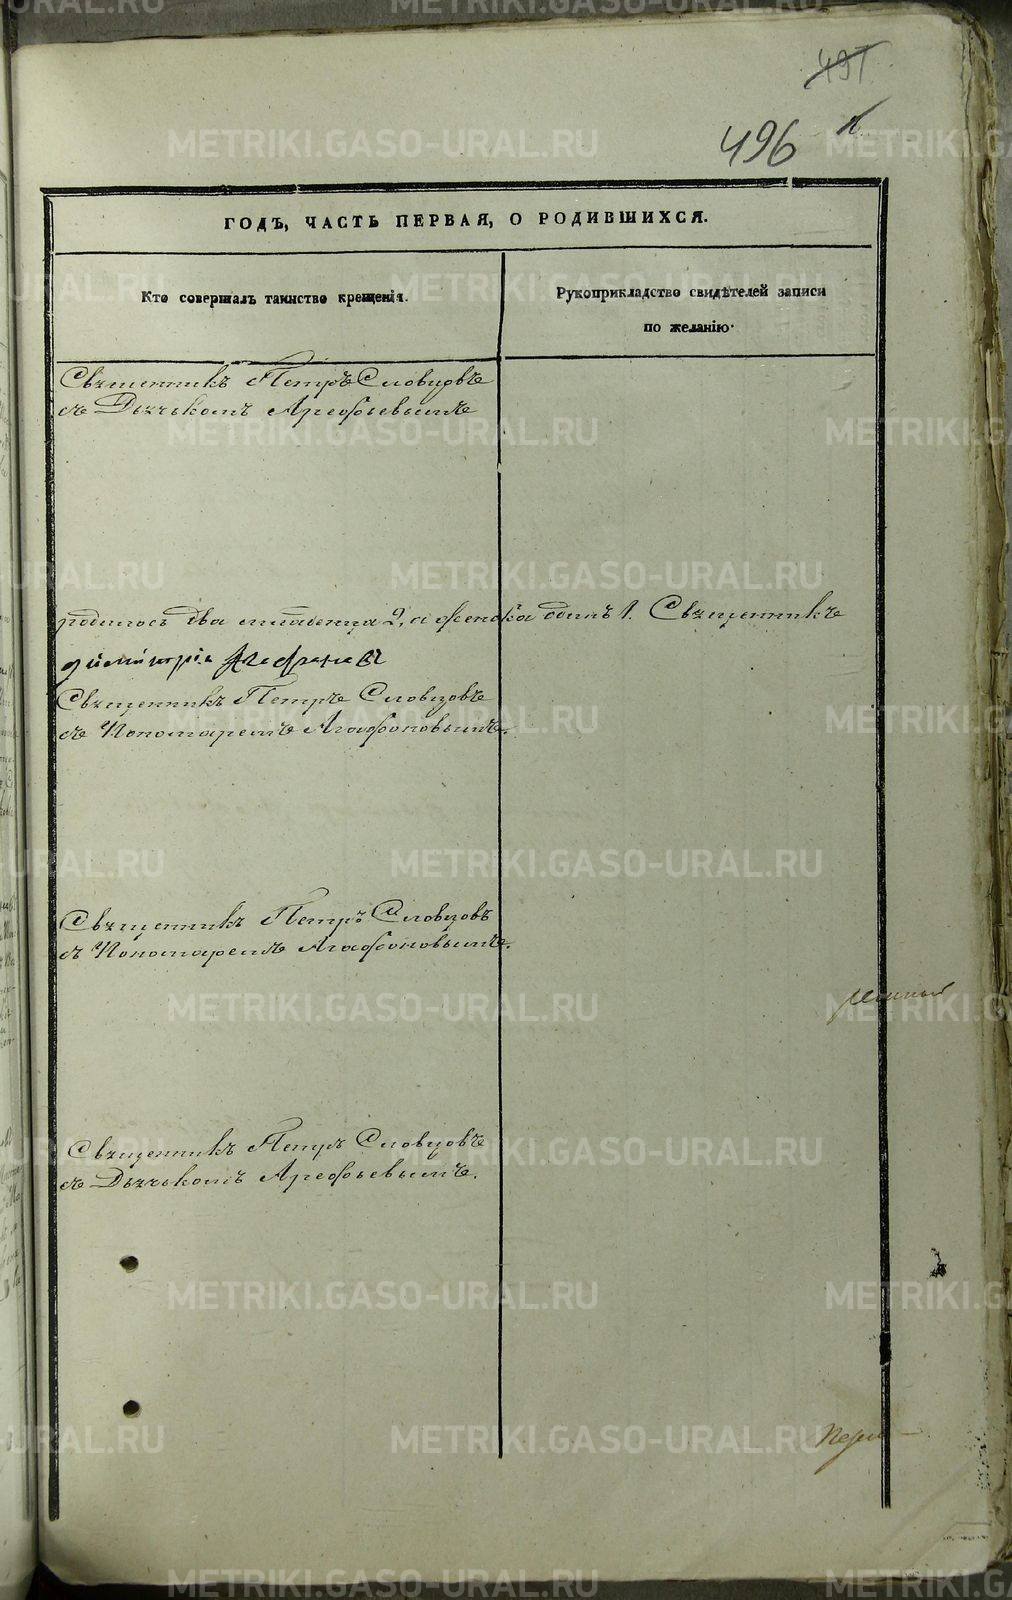 491
496
ГОДЪ, ЧАСТЬ ПЕРВАЯ, О РОДИВШИХСЯ.
Кто совершалъ таинство крещенія.
Рукоприкладство свидѣтелей записи
по желанію.
Священникъ Петръ Словцовъ
съ Дьячькомъ Арефьевымъ
родилось два младенца 2, а женска одинъ 1. Священникъ
Димитрій
Священникъ Петръ Словцовъ
съ Пономаремъ Агафоновымъ.
Священникъ Петръ Словцовъ
съ Пономаремъ Агафоновымъ.
Священникъ Петръ Словцовъ
съ Дьячькомъ Арефьевымъ.
METRIKI.GASO-URAL.RU